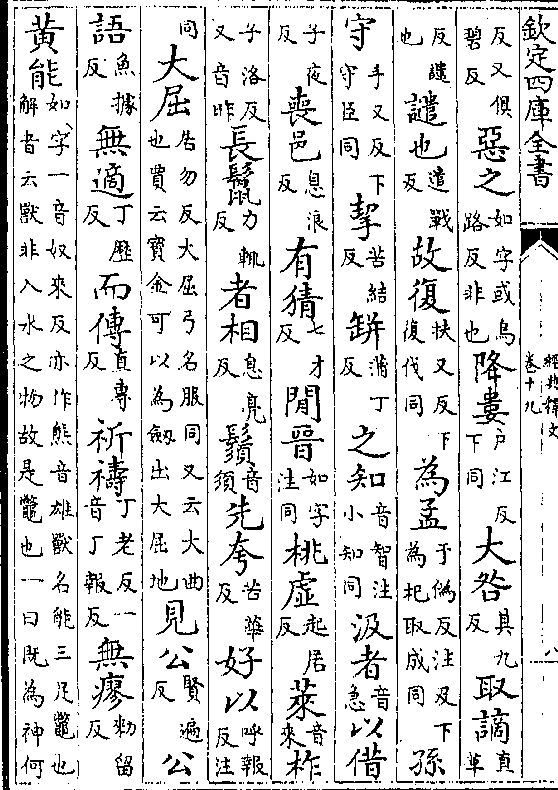 欽定四庫全書
經典釋文
卷十九
八
反又俱碧反 惡之 如字或烏路反非也 降婁 户江反下同 大咎 其九反 取謫 直革
反譴也 譴也 遣戰反 故復 扶又反下復伐同 為孟 于偽反注及下為杞取成同 孫
守 手又反下守臣同 挈 苦結反 缾 蒲丁反 之知 音智注小知同 汲者 音急 以借
子夜反 喪邑 息浪反 有猜 七才反 閒晉 如字注同 桃虚 起居反 萊 音來 柞
子洛反又音昨 長鬛 力輒反 者相 息亮反 鬚 音須 先夸 苦華反 好以 呼報反注
同 大屈 居勿反大屈弓名服同又云大曲也賈云寳金可以為劒出大屈地 見公 賢遍反 公
語 魚據反 無適 丁歷反 而傳 直專反 祈禱 丁老反一音丁報反 無瘳 勑留反
黄能 如字一音奴來反亦作熊音雄獸名能三足鼈也解者云獸非入水之物故是鼈也一曰既為神何